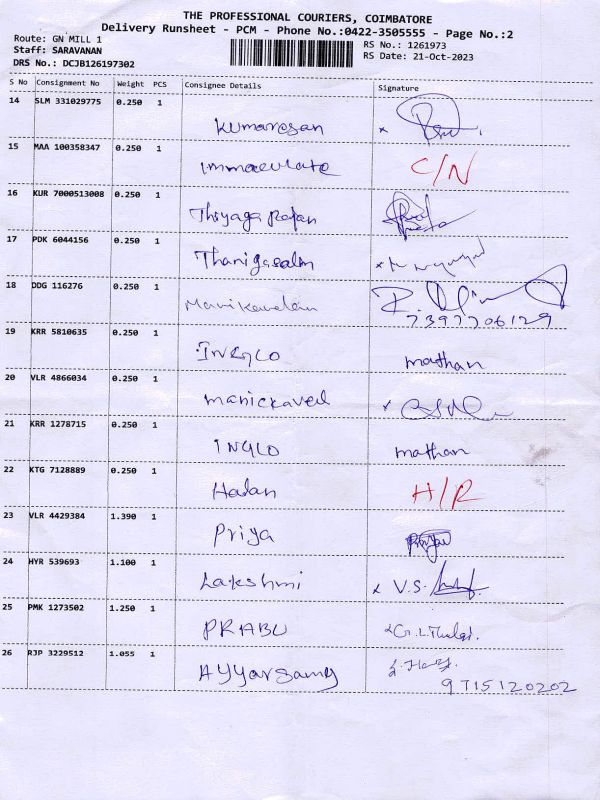 THE PROFESSIONAL COURIERS, COIMBATORE
Delivery Runsheet - PCM - Phone No.:0422-3505555 - Page No.:2
Route: GN MILL 1
Staff: SARAVANAN
DRS No.: DCJB126197302
RS No.: 1261973
RS Date: 21-Oct-2023
S No Consignment No Weight PCS Consignee Details Signature
14 SLM 331029775 0.250 1
Kumaresan x
15 MAA 100358347 0.250 1
Immaculate C/N
16 KUR 7000513008 0.250 1
Thiyaga Rajan
17 PDK 6044156 0.250 1
Thanigasalm x
18 DDG 116276 0.250 1
Manikandan
7397706129
19 KRR 5810635 0.250 1
INGLO mathan
20 VLR 4866034 0.250 1
Manickavel x
21 KRR 1278715 0.250 1
INGLO mathan
22 KTG 7128889 0.250 1
Hatan H/R
23 VLR 4429384 1.390 1
Priya
24 HYR 539693 1.100 1
Lakshmi x V.S.
25 PMK 1273502 1.250 1
PRABU
26 RJP 3229512 1.055 1
AYYarsamy
9715120202